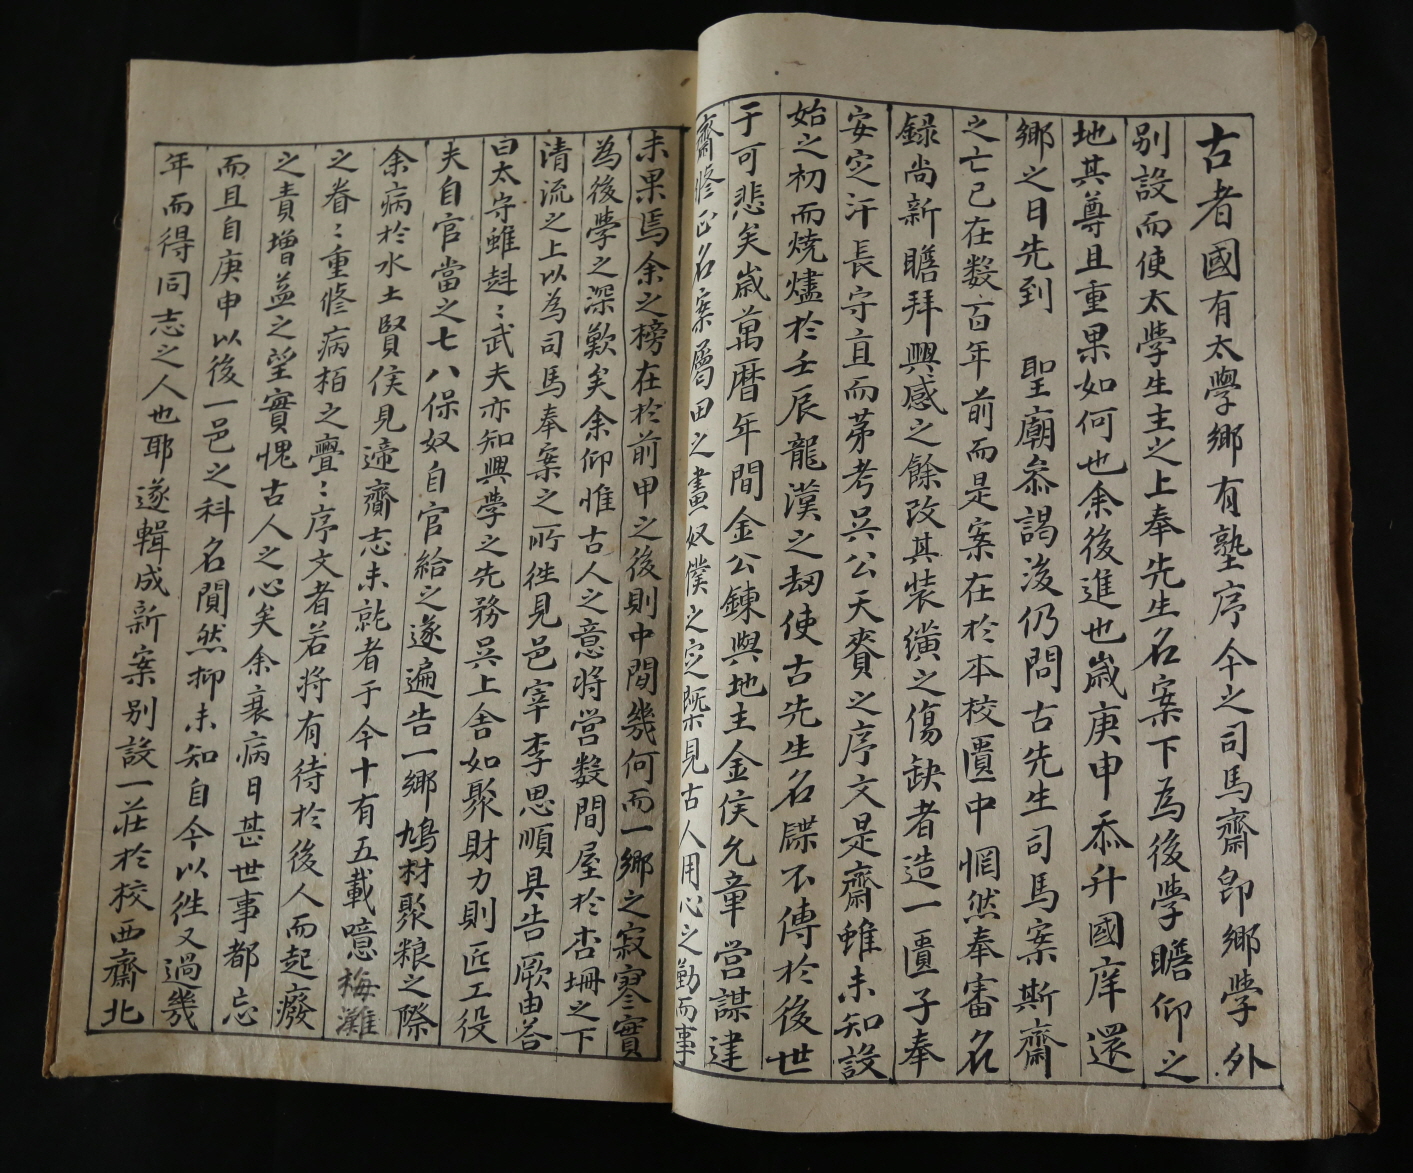 古者國有太學鄉有塾序今之司馬齋卽鄉學外
別設而使太學生主之上奉先生名案下為後學瞻仰之
地其尊且重果如何也余後進也歲庚申忝升國庠還
鄉之日先到 聖廟叅謁後仍問古先生司馬案斯齋
之亡已在数百年前而是案在於本校匱中惘然奉審名
錄尚新瞻拜興感之餘改其装䌙之傷缺者造一匱子奉
安定汗長守直而第考吳公天賚之序文是齋雖未知設
始之初而燒燼於壬辰龍漢之刼使古先生名牒不傳於後世
于可悲矣歲萬曆年間金公鍊與地主金侯允章営謀建
齋修正名案屬田之畫奴僕之定槩見古人用心之勤而事
未果焉余之榜在於前甲之後則中間幾何而一鄉之寂寥實
為後學之深歎矣余仰惟古人之意将営数間屋於杏壇之下
清流之上以為司馬奉案之所徃見邑宰李思順具告厥由答
曰太守雖赳〻武夫亦知興學之先務吳上舍如聚財力則匠工役
夫自官當之七八保奴自官給之遂遍告一鄉鳩材聚粮之際
余病於水土賢侯見遞齎志未就者于今十有五載噫梅灘
之眷〻重修病栢之亹〻序文者若将有待於後人而起廢
之責增益之望實愧古人之心矣余衰病日甚世事都忘
而且自庚申以後一邑之科名閴然抑未知自今以徃又過幾
年而得同志之人也耶遂輯成新案別設一莊於校西齋北